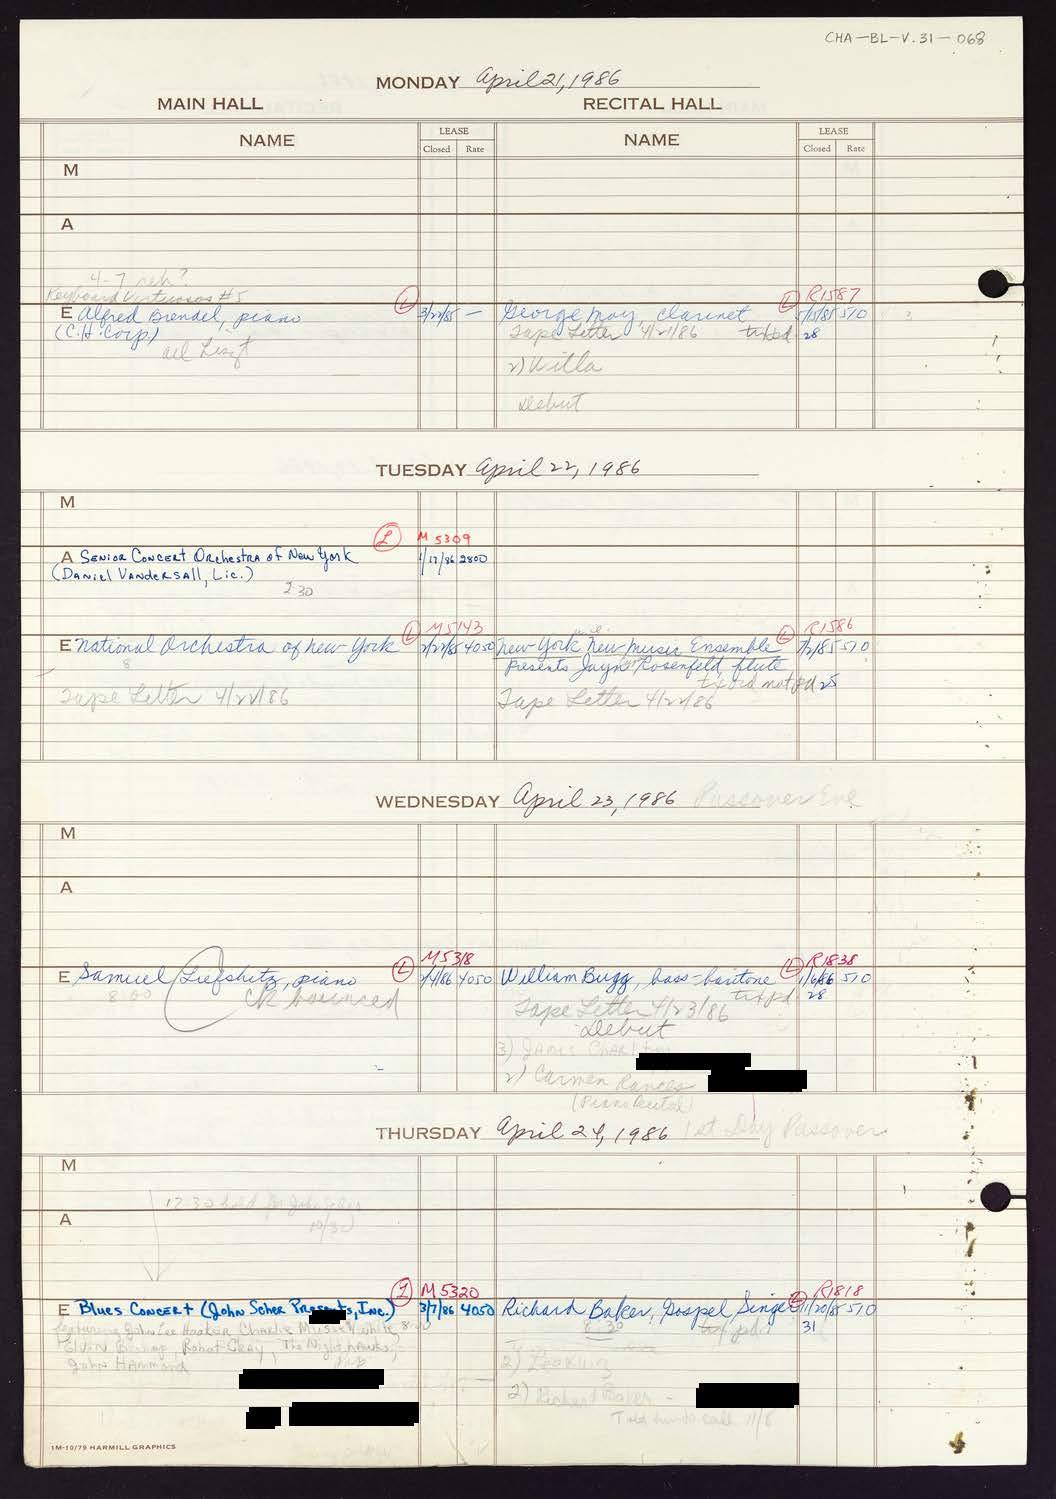 CHA-BL-V.31-068
MONDAY April 21, 1986
MAIN HALL RECITAL HALL
NAME LEASE Closed Rate NAME LEASE Closed Rate
M
A
4-7 reh?
Keyboard Virtuosos #5
E Alfred Brendel, piano L 3/22/85 — George May, clarinet L R1587 5/15/85 510
(C.H. Corp) Tape Letter 4/21/86 28
all Liszt
2) Willa
Debut
TUESDAY April 22, 1986
M
L M 5309
A Senior Concert Orchestra of New York 1/17/86 2800
(Daniel Vandersall, Lic.)
2 30
E National Orchestra of New York L M5143 2/22/85 4050 New York New Music Ensemble L R1586 510
8 presents Jayn Rosenfeld, flute
not pd 25
Tape Letter 4/22/86 Tape Letter 4/22/86
WEDNESDAY April 23, 1986 Passover Eve
M
A
E Samuel Liefshitz, piano L M5318 4050 William Bugg, bass-baritone L R1838 1/6/86 510
8:00 ck bounced 28
Tape Letter 4/23/86
Debut
3) James Charlton
2) Carmen Rances
(Piano Recital)
THURSDAY April 24, 1986 1st Day Passover
M
12-3 hold for John Scher
10/30
A
E Blues Concert (John Scher Presents, Inc.) L M5320 3/7/86 4050 Richard Baker, Gospel Singer L R1818 11/20/85 510
featuring John Lee Hooker, Charlie Musselwhite 8:00 8:30 31
Elvin Bishop, Robert Cray, The Nighthawks,
John Hammond
2) Richard Baker -
Told call 11/6
1M-10/79 HARMILL GRAPHICS